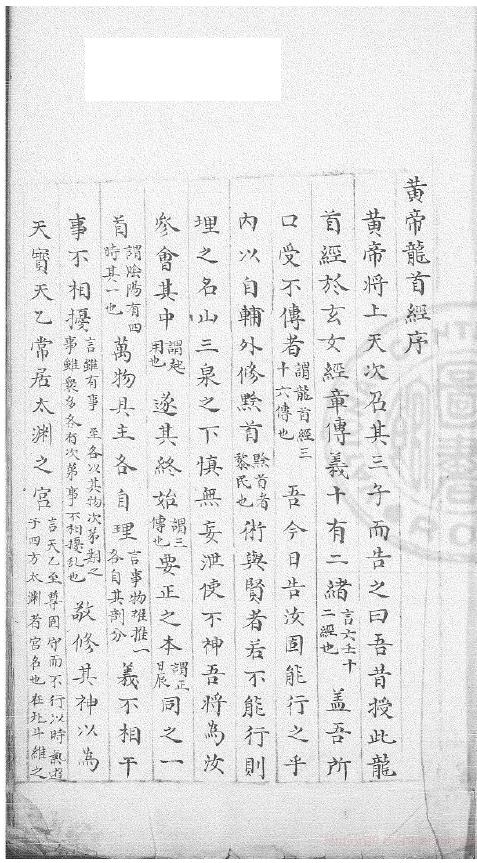 黃帝龍首經序
黃帝將上天次召其三子而告之曰吾昔授此龍
首經於玄女經章傳義十有二緒言六壬十二經也盖吾所
口受不傳者謂龍首經三十六傳也吾今日告汝固能行之乎
內以自輔外修黔首黔首者黎民也術與賢者若不能行則
埋之名山三泉之下慎無妄泄使不神吾將為汝
叅會其中謂起用也遂其終始謂三傳也要正之本謂正日辰同之一
首謂陰陽有四時其一也萬物具主各自理言事物雖推一各自其剖分義不相干
事不相擾言雖有事至各以其物次第對之事雖衆多各有次第事不相擾乱也敬修其神以為
天寳天乙常居太淵之宮言天乙至尊固守而不行以時氣遊于四方太淵者宮名也在北斗維之